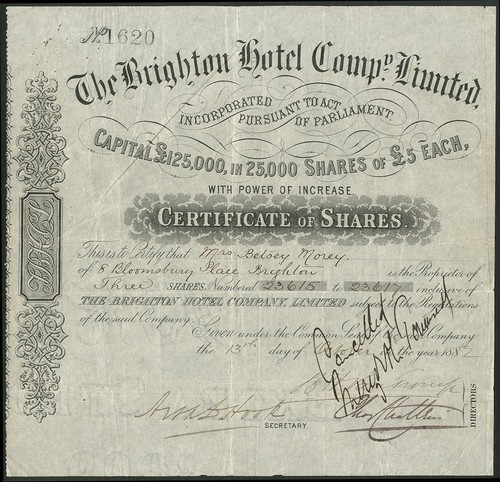 No. 1620
The Brighton Hotel Compy. Limited,
INCORPORATED PURSUANT TO ACT OF PARLIAMENT
CAPITAL £125,000, IN 25,000 SHARES OF £5 EACH,
WITH POWER OF INCREASE.
CERTIFICATE OF SHARES.
This is to Certify that Mrs Betsey Morey
of 8 Bloomsbury Place Brighton is the Proprietor of
Three SHARES. Numbered 23615 to 23617 inclusive of
THE BRIGHTON HOTEL COMPANY, LIMITED subject to the Regulations
of the said Company.
Given under the Common Seal of the Company
the 13th day of the year 1882
Cancelled
SECRETARY.
DIRECTORS